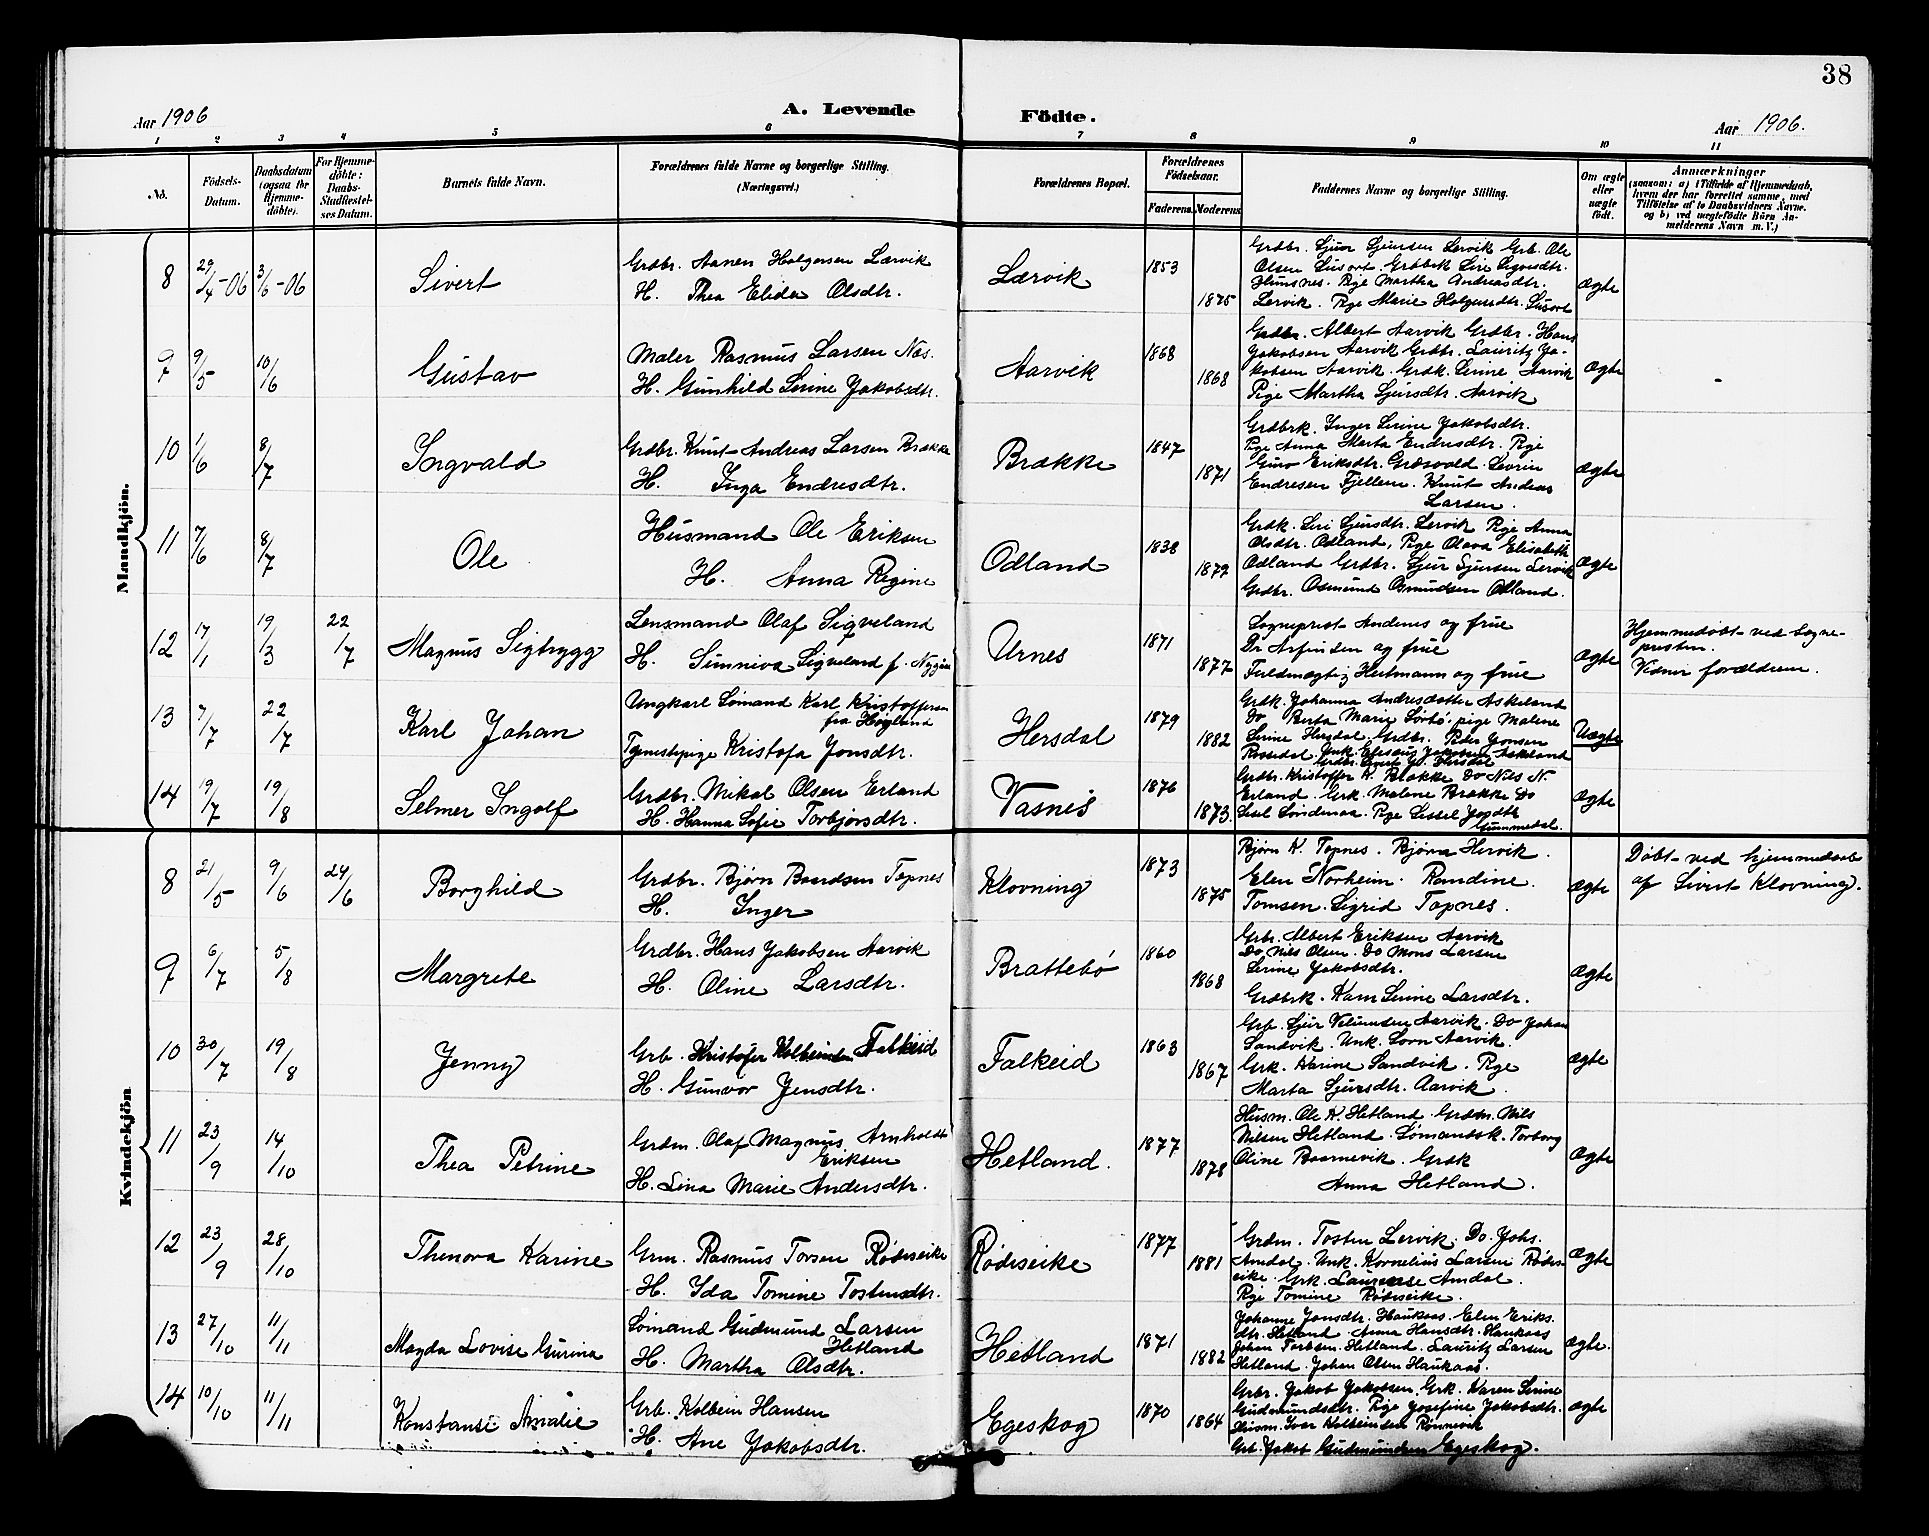 38
Aar 1906
A. Levende Födte.
Aar 1906.
1 2 3 4 5 6 7 8 9 10 11
No.
Födsels-Datum.
Daabsdatum (ogsaa for Hjemme-döbte).
For Hjemme-döbte: Daabs-Stadfæstel-ses Datum.
Barnets fulde Navn.
Forældrenes fulde Navne og borgerlige Stilling. (Næringsvei.)
Forældrenes Bopæl.
Forældrenes Födselsaar.
Faderens. Moderens.
Faddernes Navne og borgerlige Stilling.
Om ægte eller uægte födt.
Anmærkninger
(saasom: a) i Tilfælde af Hjemmedaab,
hvem der har forrettet samme, med
Tilföielse af to Daabsvidners Navne.
og b) ved uægtefödte Börn An-
melderens Navn m. V.)
Mandkjön.
8 29/4-06 3/6-06 Sivert
Grdbr. Aanen Holgersen Lærvik
H. Thea Elida Olsdtr.
Lærvik 1853 1875
Grdbr. Sjur Sjursen Lervik Grb. Ole
Olsen Susort. Grdbrk Siri Sigvrdtr.
Pige Martha Andreasdtr.
Lervik. Pige Marie Holgersdtr. Susort
Ægte
9 9/5 10/6 Gustav
Maler Rasmus Larsen Næs.
H. Gunhild Serine Jakobsdtr.
Aarvik 1868 1868
Grdbr. Albert Aarvik Grdbr. Hans
Jakobsen Aarvik Grdbr. Lauritz Ja-
kobsen Aarvik. Grdk. Serine Aarvik
Pige Martha Sjursdtr. Aarvik
Ægte
10 1/6 8/7 Ingvald
Grdbr. Knut Andreas Larsen Brække
H. Inga Endresdtr.
Brække 1847 1871
Grdbrk. Inger Serine Jakobsdtr.
Pige Anna Marta Endresdtr. Pige
Guro Eriksdtr. Græsvold. Sevrin
Endresen Fjellem. Knut Andreas
Larsen.
Ægte
11 7/6 8/7 Ole
Husmand Ole Eriksen
H. Anna Regine
Odland 1838 1872
Grdk. Siri Sjursdtr. Lervik Pige Anna
Olsdtr. Odland, Pige Olava Elisabeth
Odland Grdbr. Sjur Sjursen Lervik
Grdbr. Osmund Osmundsen Odland.
Ægte
12 17/1 19/3 22/7 Magnus Sigtrygg
Lensmand Olaf Sigveland
H. Sunniva Sigveland f.
Urnes 1871 1877
Sogneprest Andenes og frue
Dr Arfinsen og frue
Fuldmægtig Heitmann og frue
Ægte
Hjemmedøbt ved sogne-
presten.
Vidner forældrene.
13 7/7 22/7 Karl Johan
Ungkarl Sømand Karl Kristoffersen
fra Høyland
Tjenestepige Kristofa Jonsdtr.
Hersdal 1879 1882
Grdk. Johanna Andresdotter Askeland
Do Berta Marie Sørbø. pige Malene
Serine Hersdal. Grdbr. Peder Jonsen
Rossedal Unk. Eliseus Jakobsen Askeland
Grdbr. Hersdal
Uægte
14 19/7 19/8 Selmer Ingolf
Grdbr. Mikal Olsen Erland
H. Hanna Sofie Torbjørsdtr.
Vasnes 1876 1873
Grdbr. Kristoffer K. Brække Do Nils N.
Erland. Grk. Malene Brække Do
Sisel Søndenaa. Pige Sissel
Gummedal.
Ægte
Kvindekjön
8 21/5 9/6 24/6 Borghild
Grdbr. Bjørn Baardsen Topnes
H. Inger
Klovning 1873 1875
Bjørn K. Topnes. Bjørn Hervik.
Elen Norheim. Randine
Tomsen. Sigrid Topnes.
Ægte
Døbt ved hjemmedaab
af Sivert Klovning.
9 6/7 5/8 Margrete
Grdbr. Hans Jakobsen Aarvik
H. Oline Larsdtr.
Brattebø 1860 1868
Grb. Albert Eriksen Aarvik
Do Nils Olsen. Do Mons Larsen
Serine Jakobsdtr.
Grdbrk. Karn Serine Larsdtr.
Ægte
10 30/7 19/8 Jenny
Grb. Kristofer Kolbeinsen Falkeid
H. Gunvor Jensdtr.
Falkeid 1863 1867
Grb. Sjur Aarvik. Do Johan
Sandvik. Unk. Aarvik.
Grk. Karine Sandvik. Pige
Marta Sjursdtr. Aarvik.
Ægte
11 23/9 14/10 Thea Petrine
Grdm. Olaf Magnus Arnholdt
Eriksen
H. Lina Marie Andersdtr.
Hetland. 1877 1878
Husm. Ole K. Hetland. Grdm. Nils
Nilsen Hetland. Sømandsk. Torborg
Oline Baarnevik. Grdk
Anna Hetland.
Ægte
12 23/9 28/10 Thenora Karine
Grm. Rasmus Torsen Rødiseike
H. Ida Tomine Tostensdtr.
Rødiseike 1877 1881
Grdm. Tosten Lervik. Do. Johs.
Amdal. Unk. Kornelius Larsen Rødis-
eike. Grk. Laurense Amdal.
Pige Tomine Rødiseike.
Ægte
13 27/10 11/11 Magda Lovise Gurina
Sømand Gudmund Larsen
Hetland
H. Martha Olsdtr.
Hetland 1871 1882
Johanne Jonsdtr. Haukaas. Elen Eriks-
dtr. Hetland Anna Hansdtr. Haukaas
Johan Torbsen. Hetland. Lauritz Larsen
Hetland. Johan Olsen Haukaas.
Ægte.
14 10/10 11/11 Konstanse Amalie
Grb. Kolbein Hansen
H. Ane Jakobsdtr.
Egeskog 1870 1864
Grbr. Jakob Jakobsen. Grk. Karen Serine
Gudmundsdtr. Pige Josefine Jakobsdtr.
Husm. Ivar Kolbeinsen Rønnevik
Grb. Jakob Gudmundsen Egeskog.
Ægte